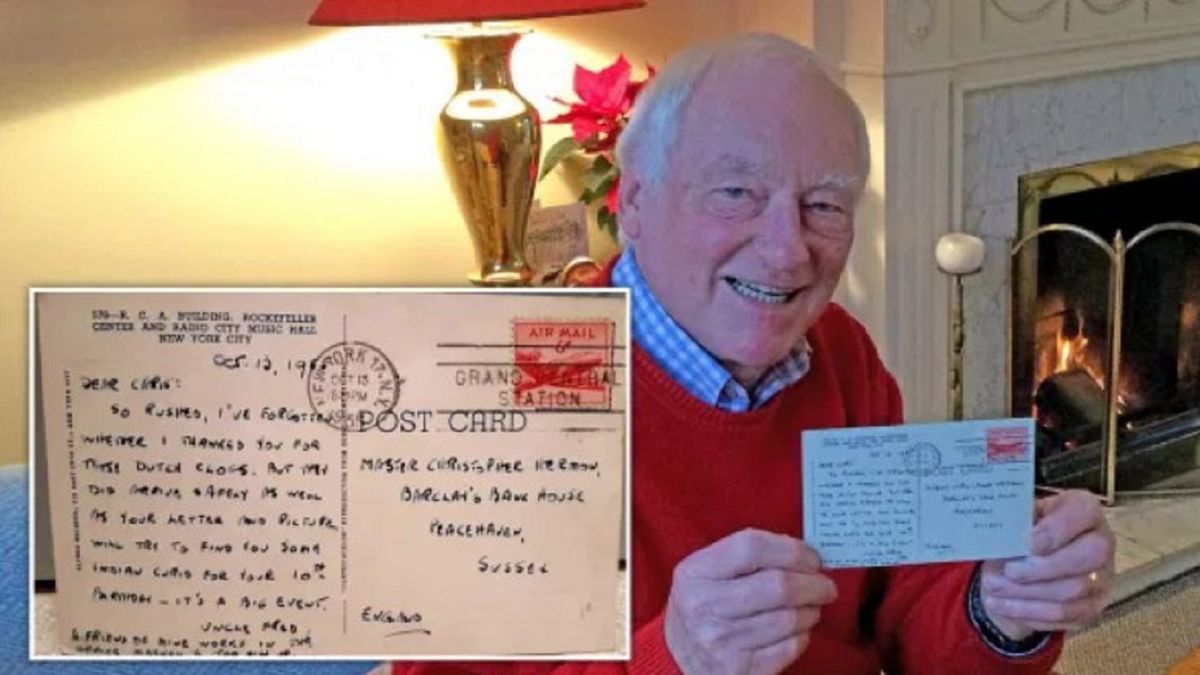 579—R. C. A. BUILDING, ROCKEFELLER
CENTER AND RADIO CITY MUSIC HALL
NEW YORK CITY
OCT. 13,
DEAR CHRIS:
SO RUSHED, I'VE FORGOTTEN
WHETHER I THANKED YOU FOR
THE DUTCH CLOGS. BUT THEY
DID ARRIVE SAFELY AS WELL
AS YOUR LETTER AND PICTURE
WILL TRY TO FIND YOU SOME
INDIAN CURIO FOR YOUR 10TH
BIRTHDAY — IT'S A BIG EVENT.
UNCLE FRED
A FRIEND OF MINE WORKS IN THE
NEW YORK 17, N.Y.
OCT 13
PM
AIR MAIL
6¢
GRAND CENTRAL
STATION
POST CARD
MASTER CHRISTOPHER HERMON,
BARCLAY'S BANK HOUSE
PEACEHAVEN,
SUSSEX
ENGLAND